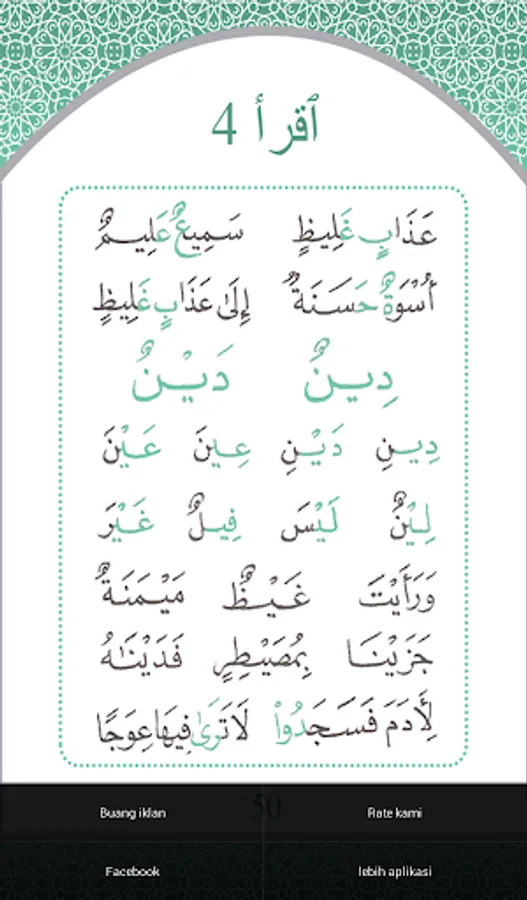 ٱقرأ 4
عَذَابٍ غَلِيظٍ سَمِيعٌ عَلِيمٌ
أُسْوَةٌ حَسَنَةٌ إِلَىٰ عَذَابٍ غَلِيظٍ
دِينٌ دَيْنٌ
دِينِ دَيْنِ عِينَ عَيْنَ
لِيْنٌ لَيْسَ فِيلٌ غَيْرَ
وَرَأَيْتَ غَيْظٌ مَيْمَنَةٌ
جَزَيْنَا بِمُصَيْطِرٍ فَدَيْنَٰهُ
لِأَدَمَ فَسَجَدُواْ لَاتَرَىٰ فِيهَاعِوَجًا
50
Buang iklan Rate kami
Facebook lebih aplikasi